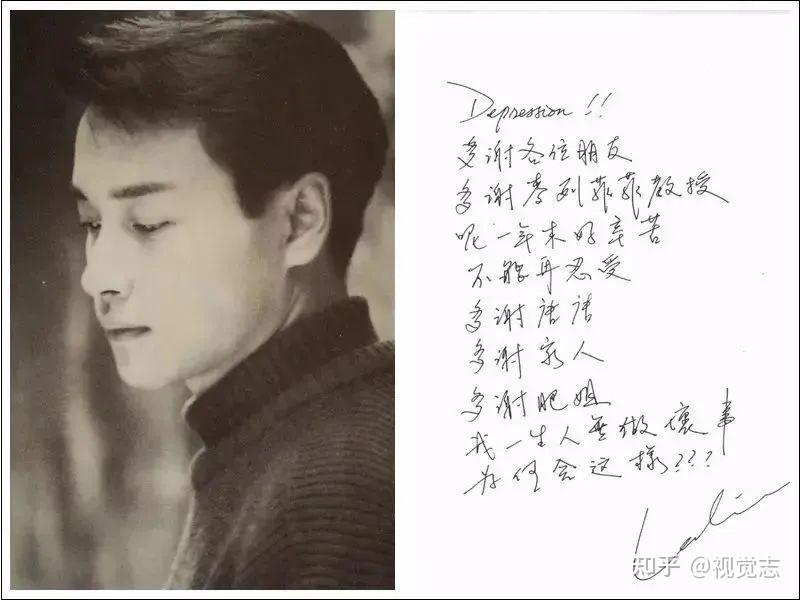 Depression!!
多謝各位朋友
多謝李列菲菲教授
呢一年来好辛苦
不能再忍受
多謝唐唐
多謝家人
多謝肥姐
我一生人無做壞事
为何会这樣???
Leslie
知乎 @视觉志